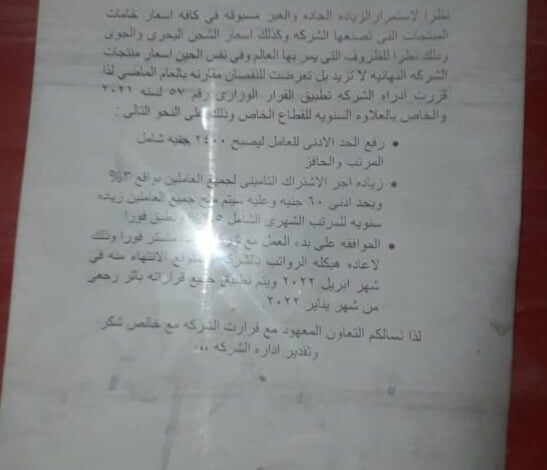 نظرا لاستمرار الزياده الحاده والغير مسبوقه في كافه اسعار خامات
المنتجات التى تصنعها الشركه وكذلك اسعار الشحن البحرى والجوى
وذلك نظرا للظروف التى يمر بها العالم وفي نفس الحين اسعار منتجات
الشركه النهائيه لا تزيد بل تعرضت للنقصان مقارنه بالعام الماضي لذا
قررت ادراه الشركه تطبيق القرار الوزارى رقم ٥٧ لسنه ٢٠٢١
والخاص بالعلاوه السنويه للقطاع الخاص وذلك على النحو التالى :
• رفع الحد الادنى للعامل ليصبح ٢٤٠٠ جنيه شامل
المرتب والحافز
• زياده اجر الاشتراك التامينى لجميع العاملين بواقع ٣%
وبحد ادنى ٦٠ جنيه وعليه سيتم منح جميع العاملين زياده
سنويه للمرتب الشهرى الشامل تطبق فورا
• الموافقه على بدء العمل مع ماستر فورا وذلك
لاعاده هيكله الرواتب بالشركه الانتهاء منه في
شهر ابريل ٢٠٢٢ ويتم تطبيق جميع قراراته باثر رجعى
من شهر يناير ٢٠٢٢
لذا نسالكم التعاون المعهود مع قرارت الشركه مع خالص شكر
وتقدير اداره الشركه ,,,